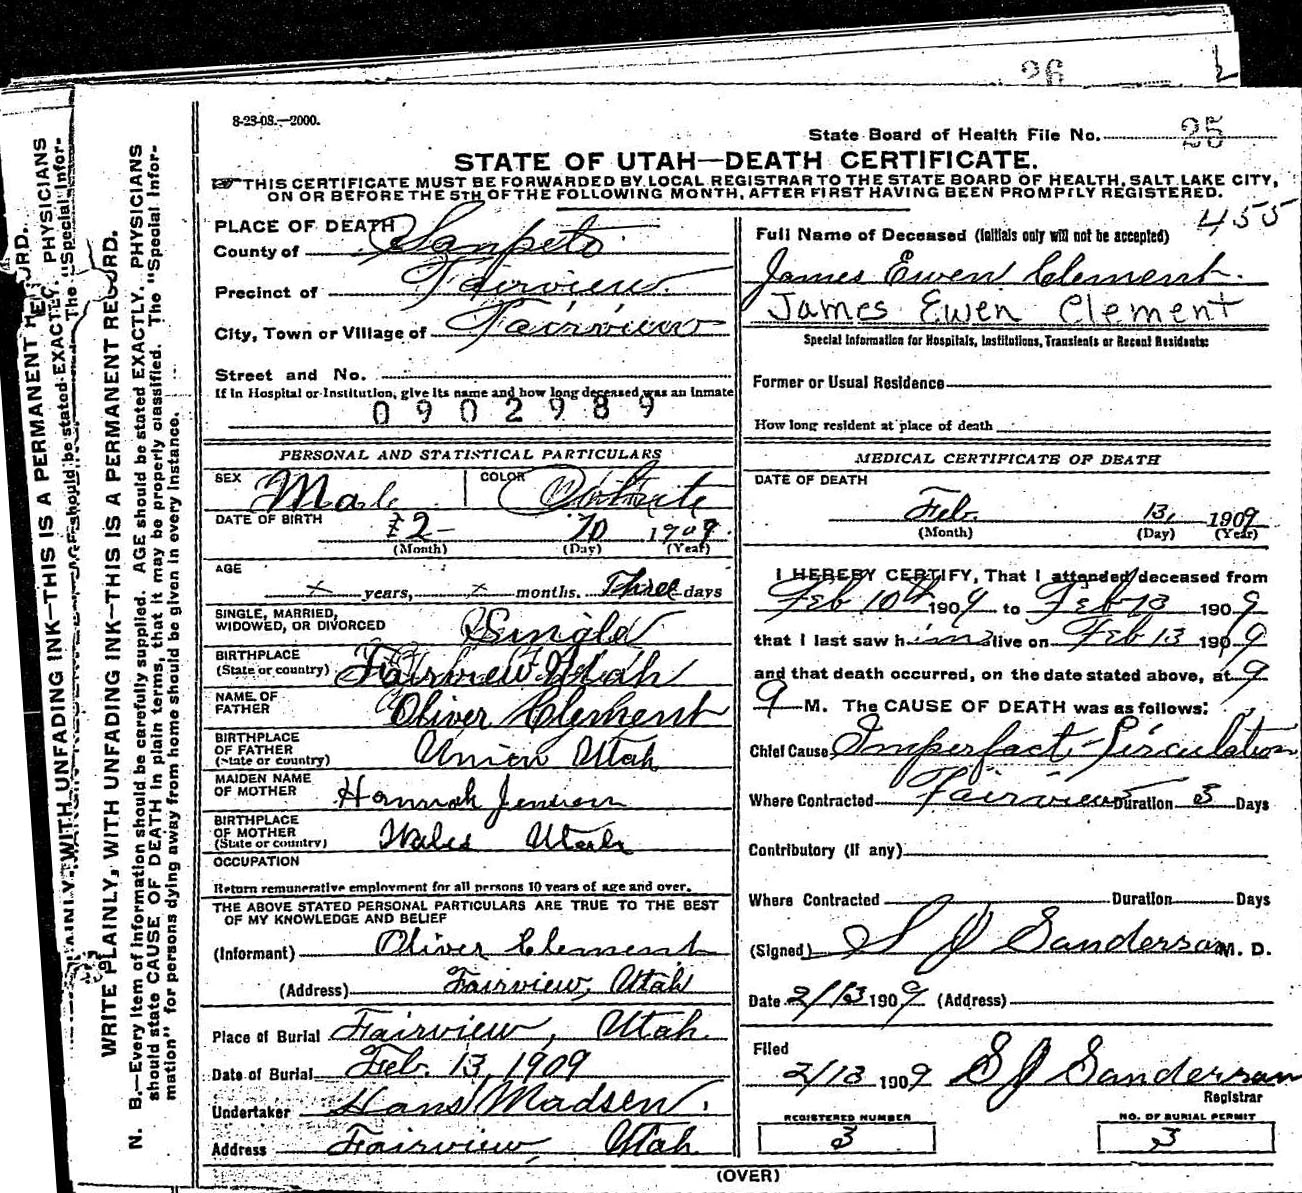 26
8-23-08.—2000.
State Board of Health File No. 25
STATE OF UTAH—DEATH CERTIFICATE.
THIS CERTIFICATE MUST BE FORWARDED BY LOCAL REGISTRAR TO THE STATE BOARD OF HEALTH, SALT LAKE CITY,
ON OR BEFORE THE 5TH OF THE FOLLOWING MONTH, AFTER FIRST HAVING BEEN PROMPTLY REGISTERED.
455
PLACE OF DEATH
County of Sanpete
Precinct of Fairview
City, Town or Village of Fairview
Street and No.
If in Hospital or Institution, give its name and how long deceased was an Inmate
0902989
Full Name of Deceased (Initials only will not be accepted)
James Ewen Clement.
James Ewen Clement
Special Information for Hospitals, Institutions, Transients or Recent Residents:
Former or Usual Residence
How long resident at place of death
PERSONAL AND STATISTICAL PARTICULARS
SEX Male COLOR White
DATE OF BIRTH 2 10 1909
(Month) (Day) (Year)
AGE
x years, x months. Three days
SINGLE, MARRIED,
WIDOWED, OR DIVORCED Single
BIRTHPLACE
(State or country) Fairview Utah
NAME OF
FATHER Oliver Clement
BIRTHPLACE
OF FATHER
(State or country) Union Utah
MAIDEN NAME
OF MOTHER Hannah Jensen
BIRTHPLACE
OF MOTHER
(State or country) Wales Utah
OCCUPATION
Return remunerative employment for all persons 10 years of age and over.
THE ABOVE STATED PERSONAL PARTICULARS ARE TRUE TO THE BEST
OF MY KNOWLEDGE AND BELIEF
(Informant) Oliver Clement
(Address) Fairview, Utah
Place of Burial Fairview, Utah.
Date of Burial Feb. 13, 1909
Undertaker Hans Madsen.
Address Fairview, Utah
MEDICAL CERTIFICATE OF DEATH
DATE OF DEATH
Feb. 13, 1909
(Month) (Day) (Year)
I HEREBY CERTIFY, That I attended deceased from
Feb 10th 1909 to Feb 13 1909
that I last saw him alive on Feb 13 1909
and that death occurred, on the date stated above, at 9
9 M. The CAUSE OF DEATH was as follows:
Chief Cause Imperfact Circulation
Where Contracted Fairview Duration 3 Days
Contributory (if any)
Where Contracted Duration Days
(Signed) S J Sanderson M. D.
Date 2/13 1909 (Address)
Filed
2/13 1909 S J Sanderson
Registrar
REGISTERED NUMBER
3
NO. OF BURIAL PERMIT
3
(OVER)
WRITE PLAINLY, WITH UNFADING INK—THIS IS A PERMANENT RECORD.
N. B.—Every item of information should be carefully supplied. AGE should be stated EXACTLY. PHYSICIANS
should state CAUSE OF DEATH in plain terms, that it may be properly classified. The "Special Infor-
mation" for persons dying away from home should be given in every instance.